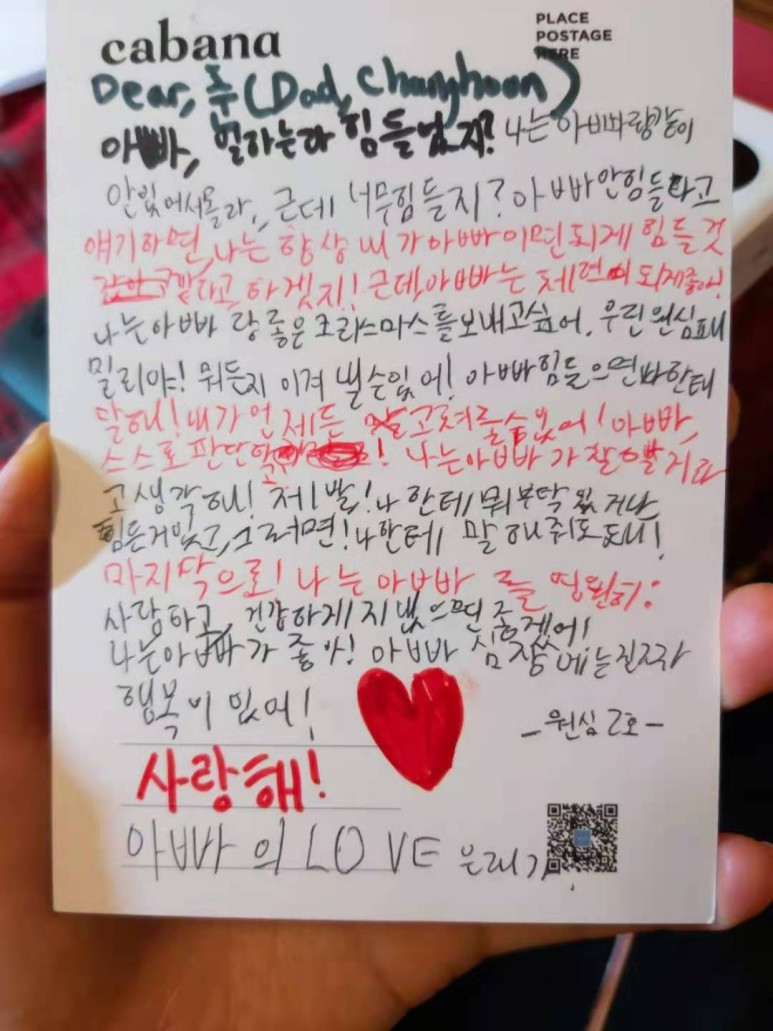 cabana
PLACE
POSTAGE
HERE
Dear, 훈 (Dad, Changhoon)
아빠, 일하는라 힘들었지? 나는 아빠랑 같이
안 있어서 몰라, 근데 너무 힘들지? 아빠 안힘들다고
얘기하면, 나는 항상 내가 아빠이면 되게 힘들 것
같다고 하겠지! 근데, 아빠는 체력이 되게 좋아!
나는 아빠랑 좋은 크리스마스를 보내고 싶어. 우린 원심 패
밀리야! 뭐든지 이겨 낼 수 있어! 아빠 힘들으면 나한테
말해! 내가 언제든 고려줄 수 있어! 아빠,
스스로 판단해! 나는 아빠가 잘 할 거라
고 생각해! 제발! 나한테 뭐 부탁 있거나
힘든거 있고, 그러면! 나한테 말 해 줘도 돼!
마지막으로! 나는 아빠를 영원히:
사랑하고, 건강하게 지냈으면 좋겠어!
나는 아빠가 좋아! 아빠 심장에는 진짜
행복이 있어!
- 원심 2호 -
사랑해!
아빠의 LOVE